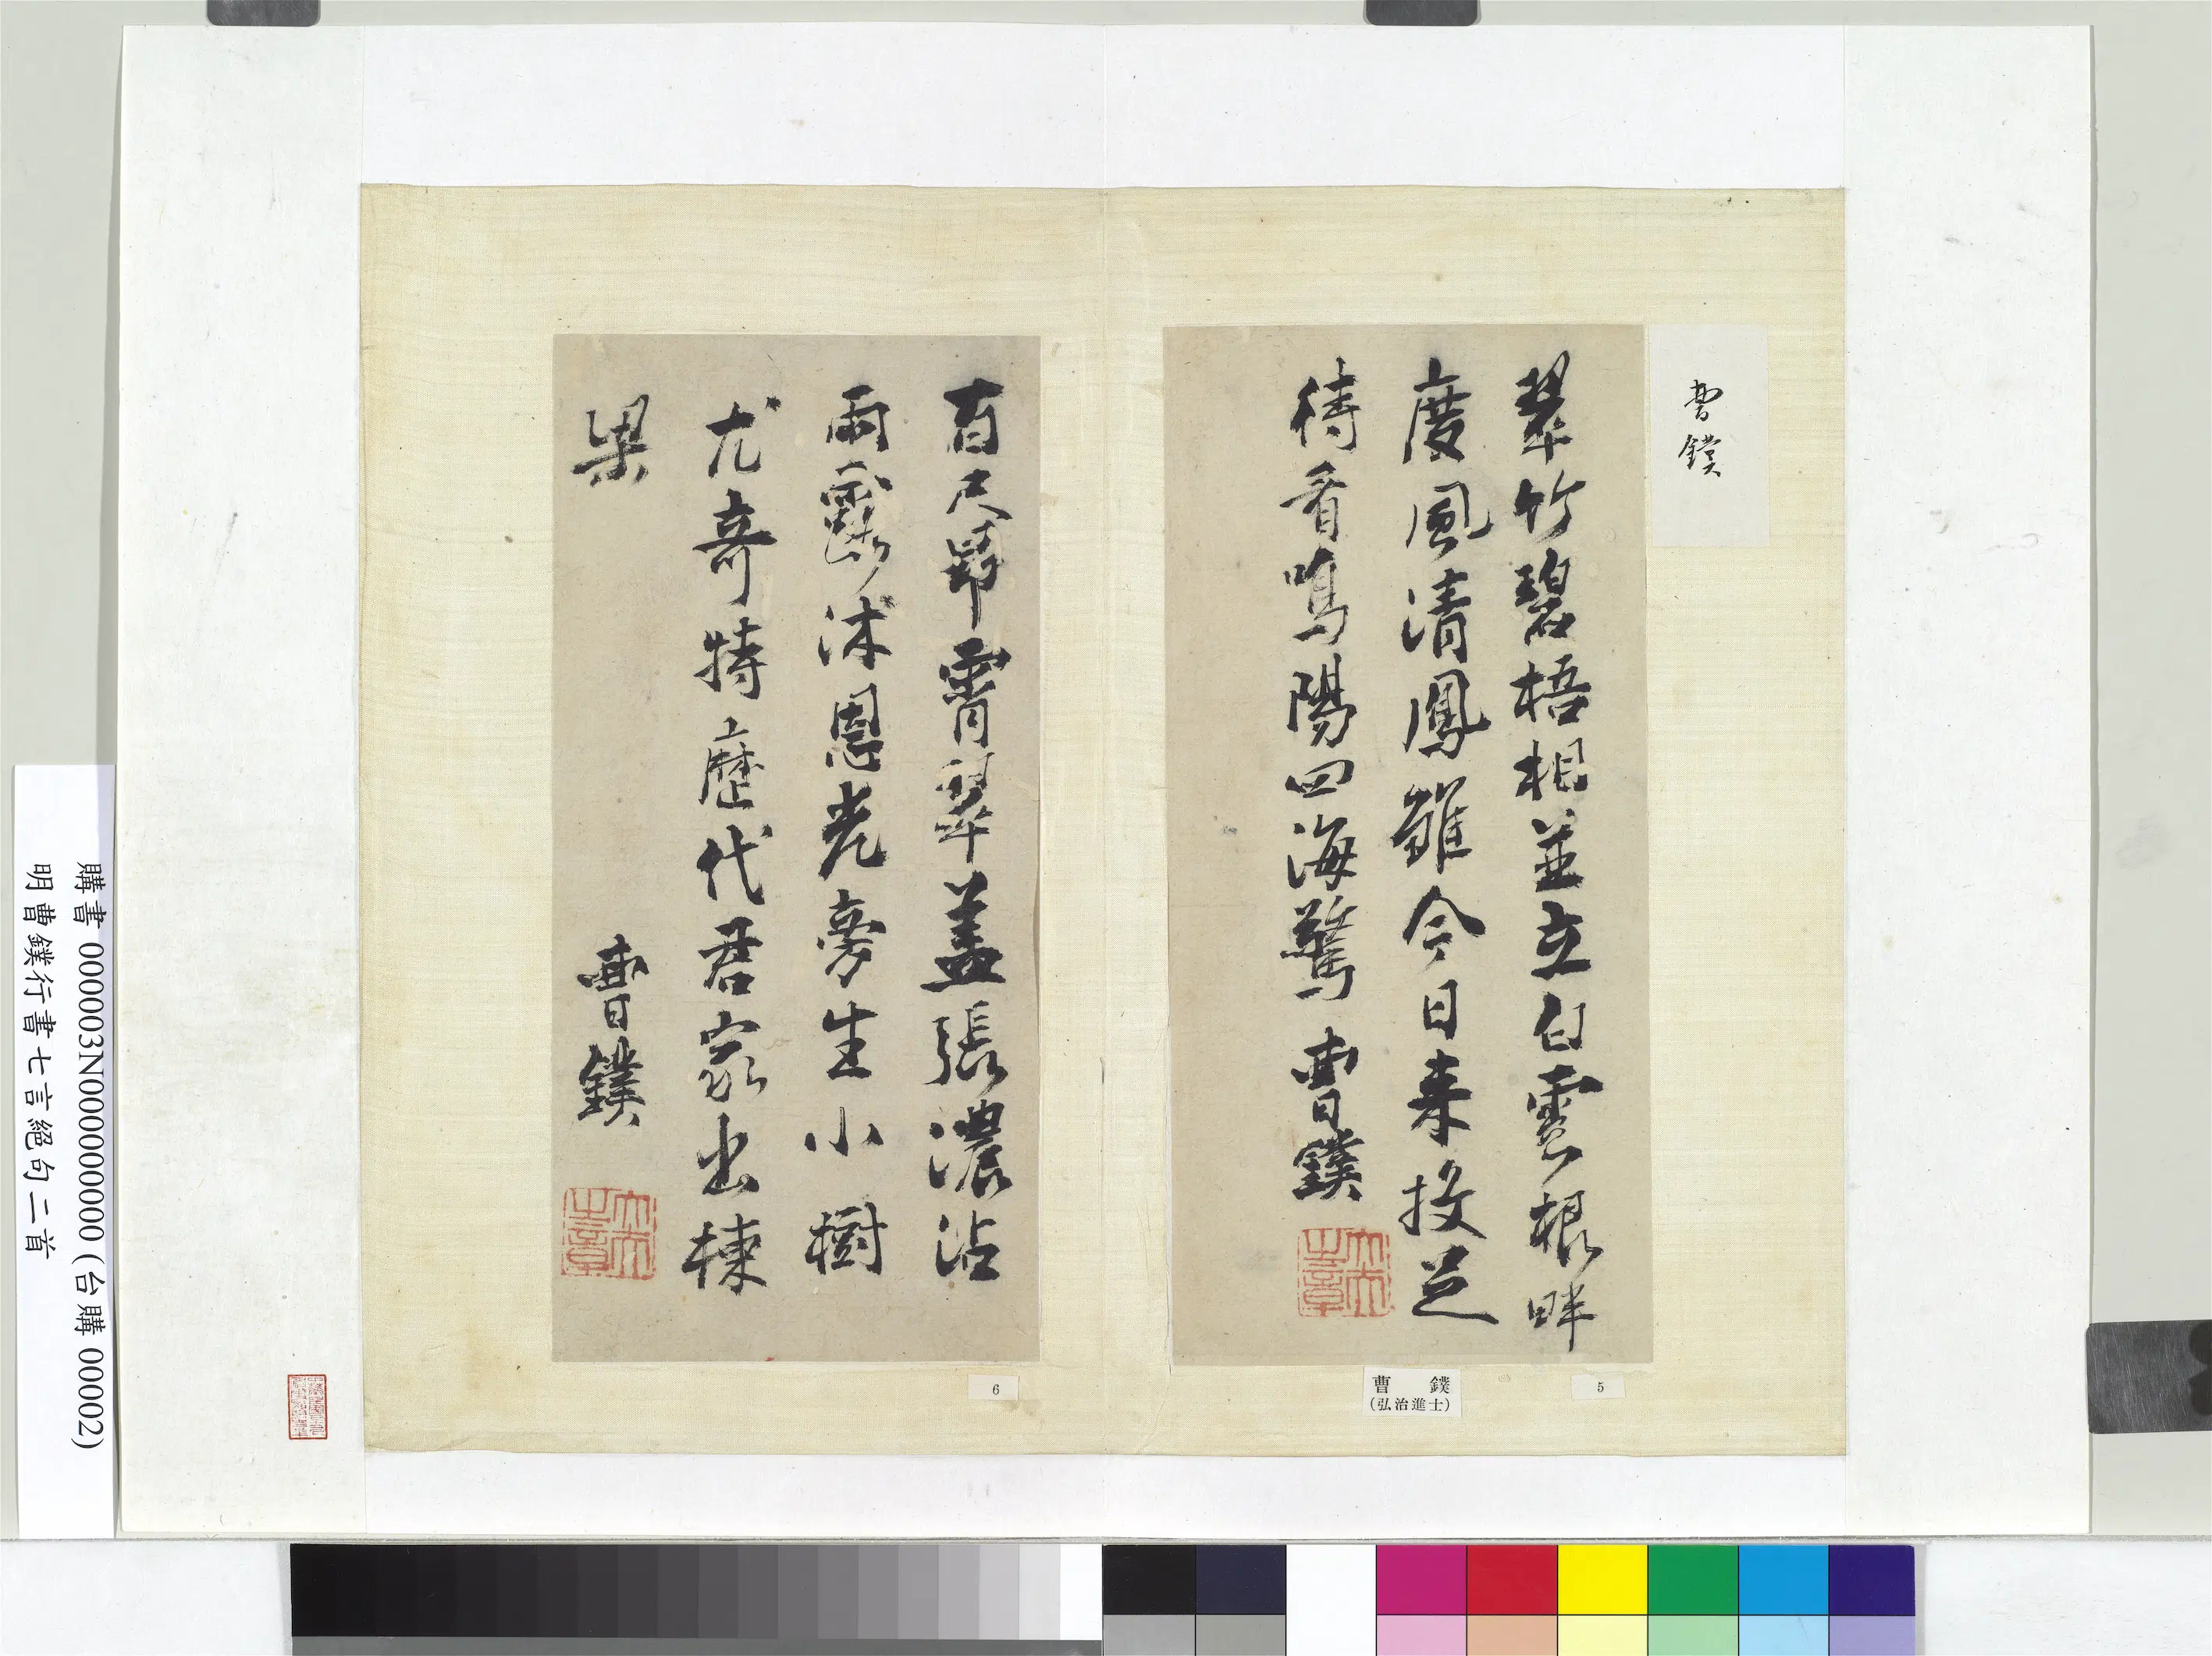 曹鏷
翠竹碧梧相並立白雲根畔
度風清鳳雛今日来投足
待看鳴陽四海驚 曹鏷
百尺昂霄翠蓋張濃沾
雨露沐恩光旁生小樹
尤奇特歷代君家出棟
梁
曹鏷
5
曹 鏷
(弘治進士)
6
購書 000003N000000000 (台購 00002)
明曹鏷行書七言絕句二首